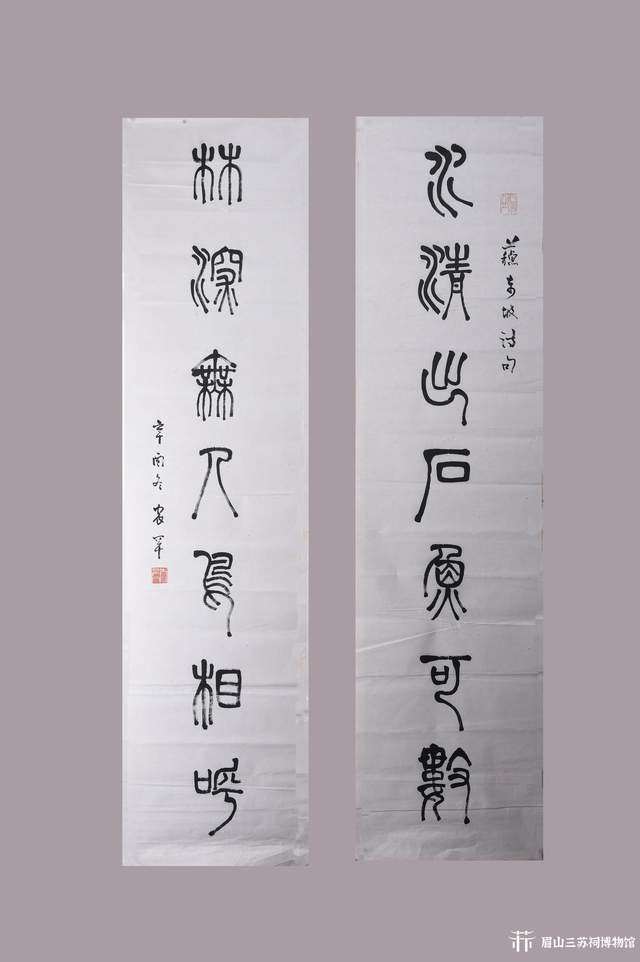 蘇東坡詩句
水清出石魚可數
林深無人鳥相呼
辛酉冬
眉山三苏祠博物馆